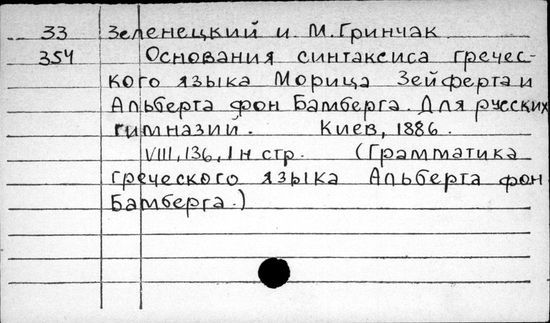 33 Зеленецкий и М. Гринчак
354 Основания синтаксиса гречес-
кого языка Морица Зейферта и
Альберта фон Бамберга. Для русских
гимназий. Киев, 1886.
VIII, 136, 1 н стр. (Грамматика
греческого языка Альберта фон
Бамберга.)